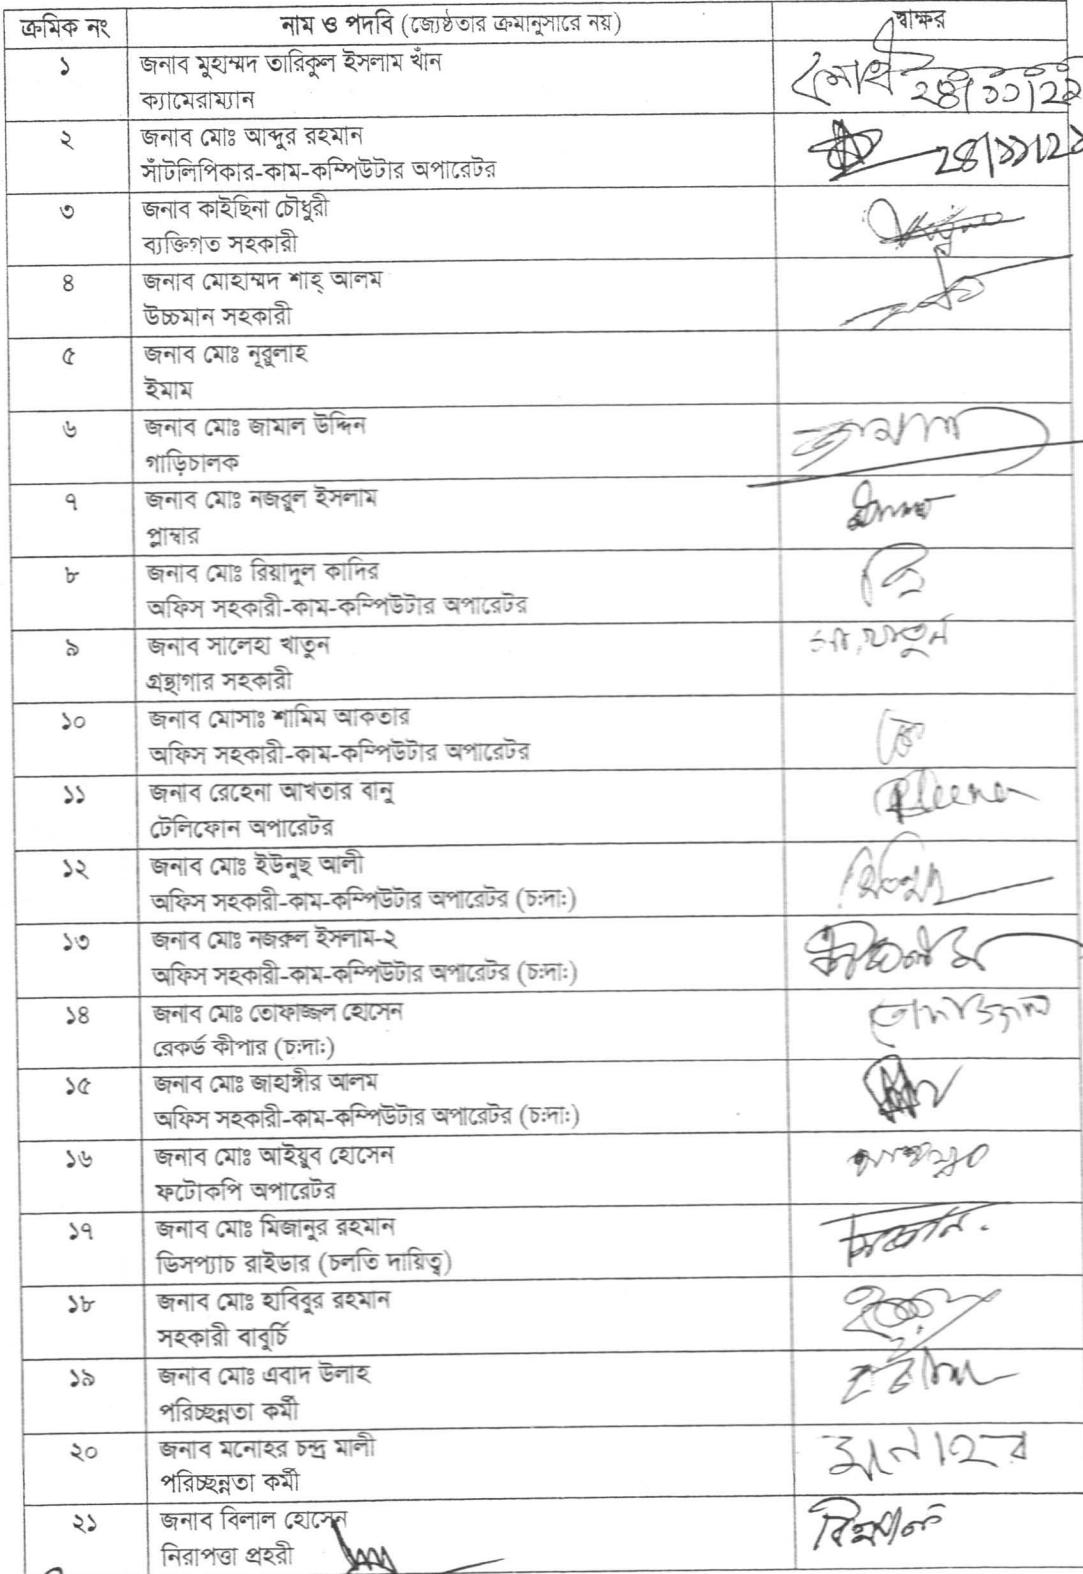 ক্রমিক নং নাম ও পদবি (জ্যেষ্ঠতার ক্রমানুসারে নয়) স্বাক্ষর
১ জনাব মুহাম্মদ তারিকুল ইসলাম খাঁন
ক্যামেরাম্যান ২৪/১১/২২
২ জনাব মোঃ আব্দুর রহমান
সাঁটলিপিকার-কাম-কম্পিউটার অপারেটর ২৪/১১/২২
৩ জনাব কাইছিনা চৌধুরী
ব্যক্তিগত সহকারী
৪ জনাব মোহাম্মদ শাহ্ আলম
উচ্চমান সহকারী
৫ জনাব মোঃ নূরুলাহ
ইমাম
৬ জনাব মোঃ জামাল উদ্দিন জামাল
গাড়িচালক
৭ জনাব মোঃ নজরুল ইসলাম
প্লাম্বার
৮ জনাব মোঃ রিয়াদুল কাদির
অফিস সহকারী-কাম-কম্পিউটার অপারেটর
৯ জনাব সালেহা খাতুন সা.খাতুন
গ্রন্থাগার সহকারী
১০ জনাব মোসাঃ শামিম আকতার
অফিস সহকারী-কাম-কম্পিউটার অপারেটর
১১ জনাব রেহেনা আখতার বানু
টেলিফোন অপারেটর
১২ জনাব মোঃ ইউনুছ আলী
অফিস সহকারী-কাম-কম্পিউটার অপারেটর (চ:দা:)
১৩ জনাব মোঃ নজরুল ইসলাম-২
অফিস সহকারী-কাম-কম্পিউটার অপারেটর (চ:দা:)
১৪ জনাব মোঃ তোফাজ্জল হোসেন তোফাজ্জল
রেকর্ড কীপার (চ:দা:)
১৫ জনাব মোঃ জাহাঙ্গীর আলম
অফিস সহকারী-কাম-কম্পিউটার অপারেটর (চ:দা:)
১৬ জনাব মোঃ আইয়ুব হোসেন
ফটোকপি অপারেটর
১৭ জনাব মোঃ মিজানুর রহমান
ডিসপ্যাচ রাইডার (চলতি দায়িত্ব)
১৮ জনাব মোঃ হাবিবুর রহমান
সহকারী বাবুর্চি
১৯ জনাব মোঃ এবাদ উলাহ
পরিচ্ছন্নতা কর্মী
২০ জনাব মনোহর চন্দ্র মালী মনোহর
পরিচ্ছন্নতা কর্মী
২১ জনাব বিলাল হোসেন বিল্লাল
নিরাপত্তা প্রহরী